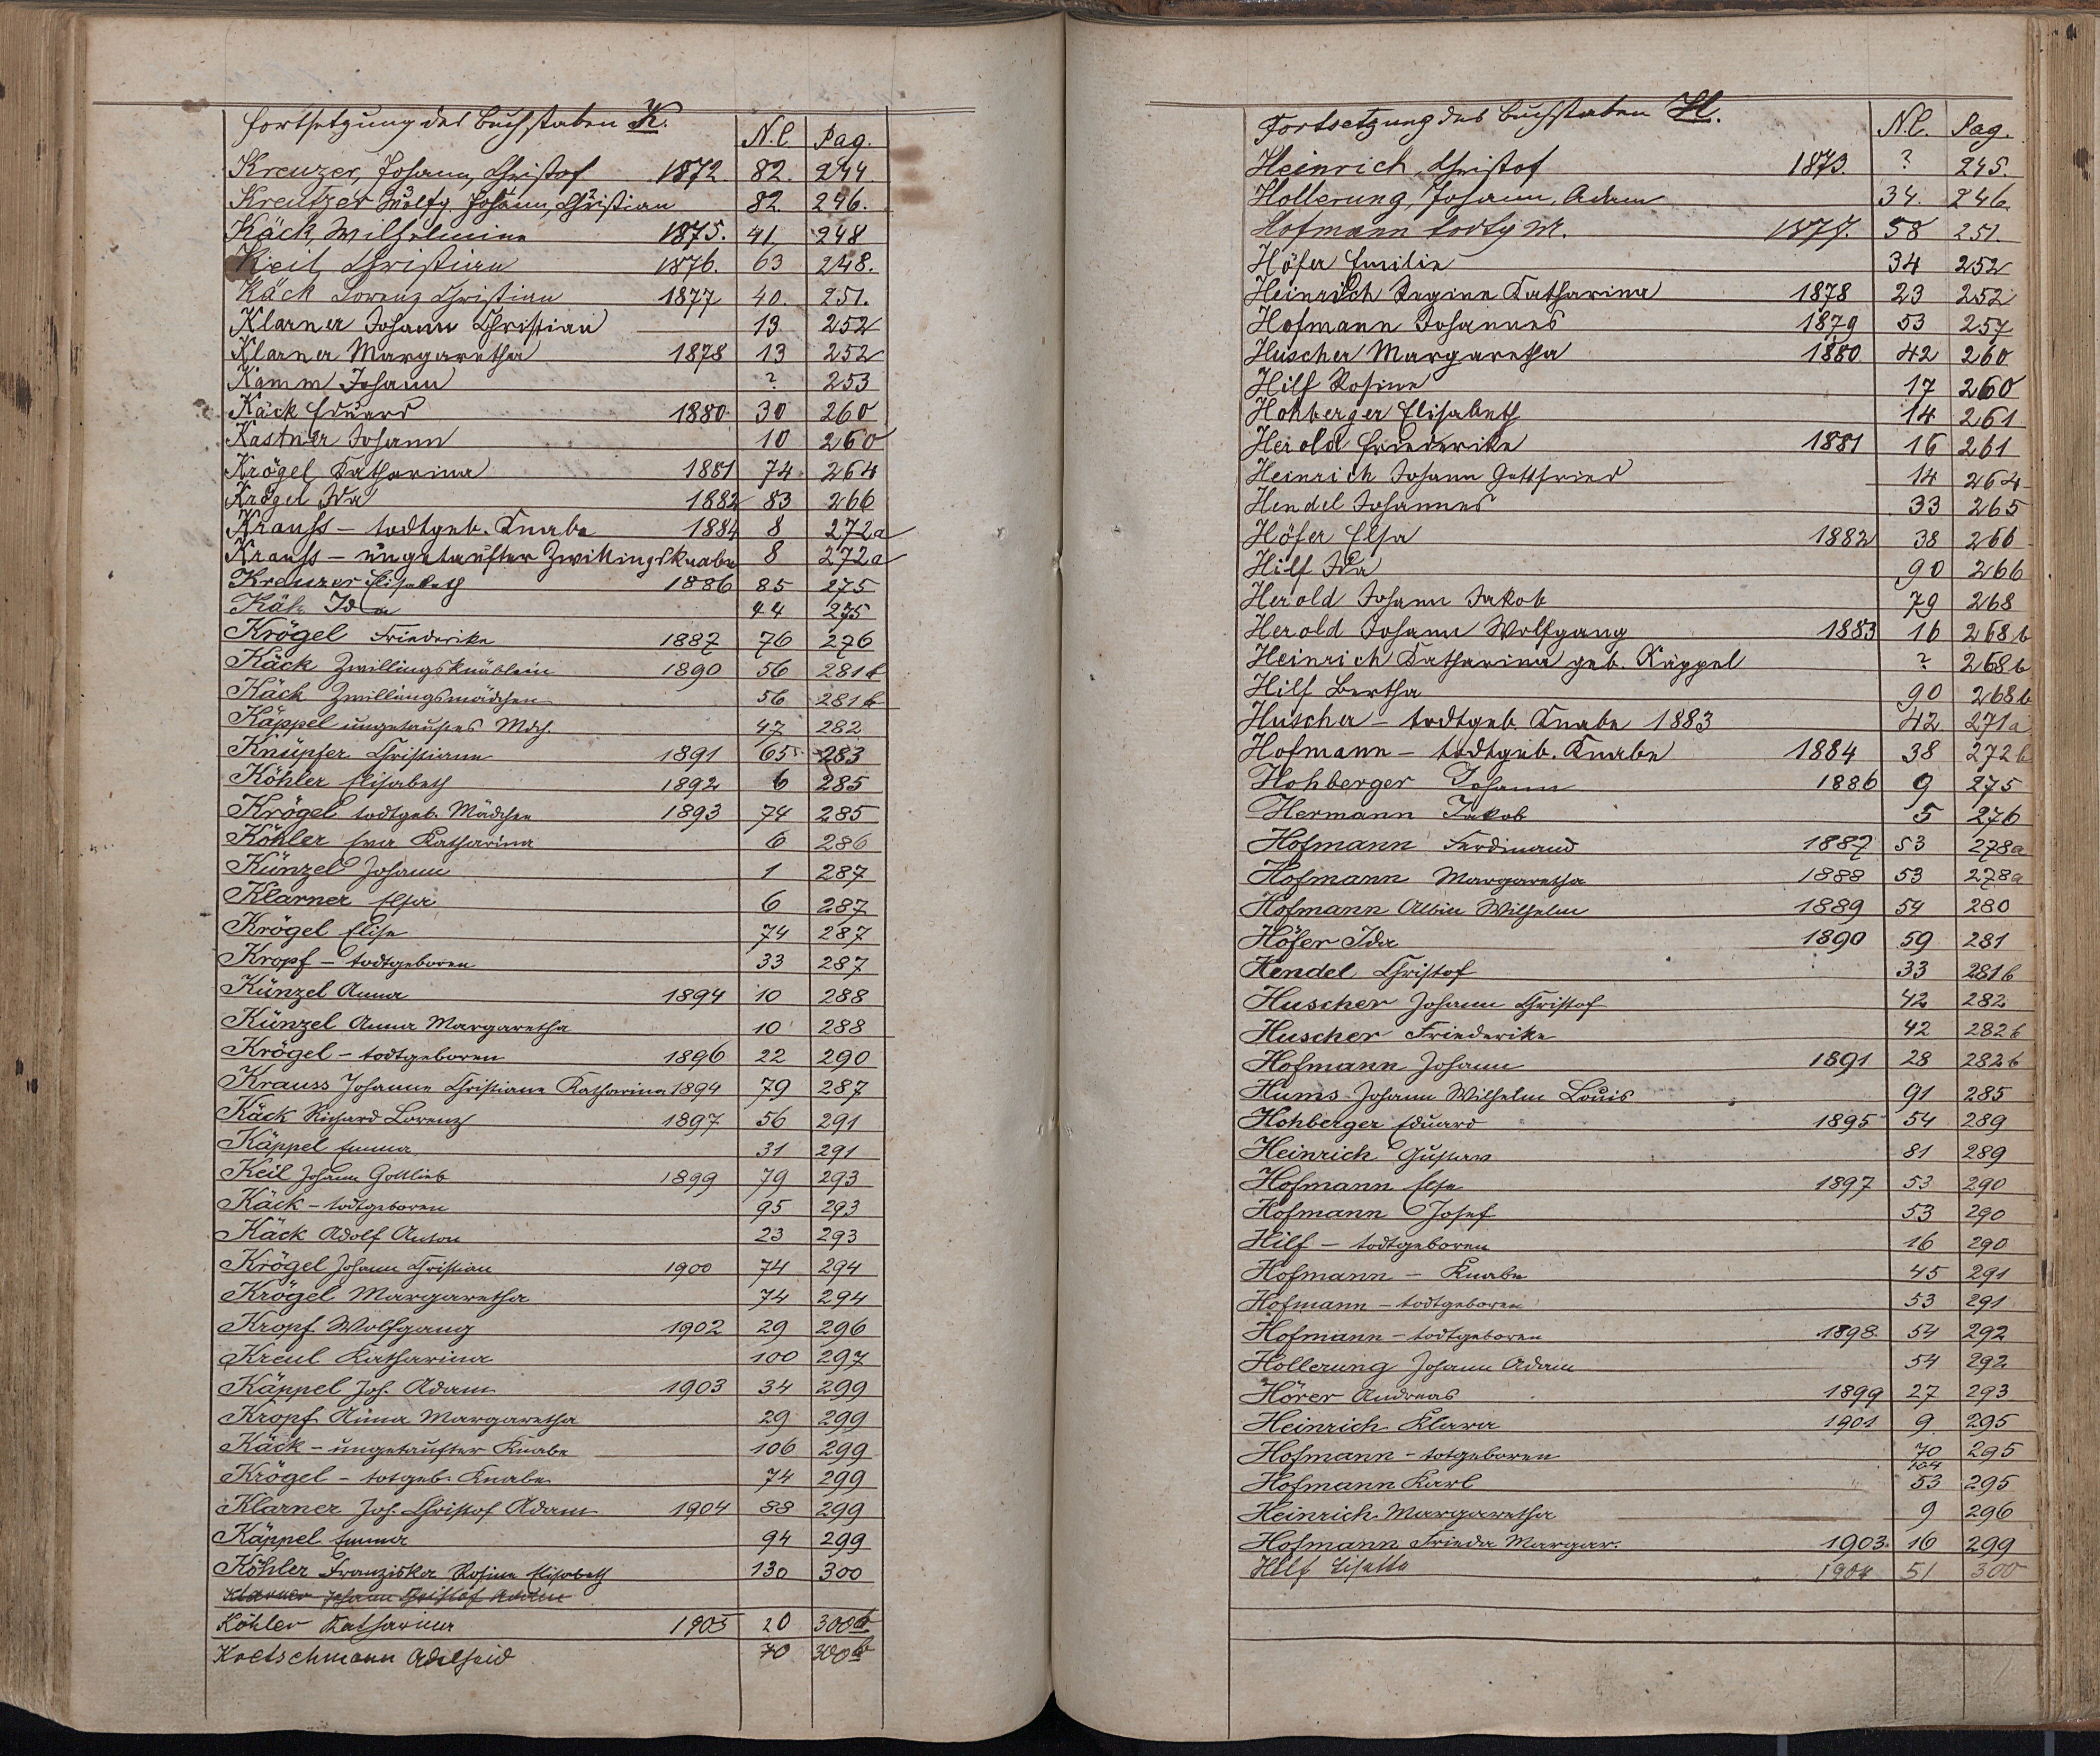 Fortsetzung des Buchstaben K. N.C. Pag.
Kreuzer, Johann, Christof 1872 82. 244.
Kreutzer Wolfg. Johann, Christian 82. 246.
Käck, Wilhelmine 1875. 41. 248
Keil, Christian 1876. 63 248.
Käck Lorenz Christian 1877 40. 251.
Klarner Johann Christian 13 252
Klarner Margaretha 1878 13 252
Kamm Johann ? 253
Käck Eduard 1880 30 260
Kastner Johann 10 260
Krögel, Katharina 1881 74 264
Krögel Ida 1882 83 266
Krauss – todtgeb. Knabe 1884 8 272a
Krauss – ungetaufter Zwillingsknabe 8 272a
Kreuzer Elisabeth 1886 85 275
Käk Ida 44 275
Krögel Friederike 1887 76 276
Käck Zwillingsknäblein 1890 56 281b
Käck Zwillingsmädchen 56 281b
Käppel ungetauftes Mdch. 47 282
Knüpfer Christiane 1891 65 283
Köhler Elisabeth 1892 6 285
Krögel todtgeb. Mädchen 1893 74 285
Köhler Eva Katharina 6 286
Künzel Johann 1 287
Klarner Elsa 6 287
Krögel Elise 74 287
Kropf – todtgeboren 33 287
Künzel Anna 1894 10 288
Künzel Anna Margaretha 10 288
Krögel – todtgeboren 1896 22 290
Krauss Johanne Christiane Katharina 1894 79 287
Käck Richard Lorenz 1897 56 291
Käppel Emma 31 291
Keil Johann Gottlieb 1899 79 293
Käck – todtgeboren 95 293
Käck Adolf Anton 23 293
Krögel Johann Christian 1900 74 294
Krögel Margaretha 74 294
Kropf Wolfgang 1902 29 296
Kreul Katharina 100 297
Käppel Joh. Adam 1903 34 299
Kropf Anna Margaretha 29 299
Käck – ungetaufter Knabe 106 299
Krögel – totgeb. Knabe 74 299
Klarner Joh. Christof Adam 1904 88 299
Käppel Emma 94 299
Köhler Franziska Rosine Elisabeth 130 300
Klarner Johann Christof Adam
Köhler Katharina 1905 20 300b
Kretschmann Adelheid 70 300b
Fortsetzung des Buchstaben H. N.C. Pag.
Heinrich, Christof 1873. ? 245.
Hollerung, Johann, Adam 34. 246.
Hofmann todtg. M. 1877. 58 251.
Höfer Emilie 34 252
Heinrich Regine Katharina 1878 23 252
Hofmann Johannes 1879 53 257
Huscher Margaretha 1880 42 260
Hilf Rosine 17 260
Hohberger Elisabeth 14 261
Herold Friederike 1881 16 261
Heinrich Johann Gottfried 14 264
Hendel Johannes 33 265
Höfer Elsa 1882 38 266
Hilf Ida 90 266
Herold Johann Jakob 79 268
Herold Johann Wolfgang 1883 16 268b
Heinrich Katharina geb. Käppel ? 268b
Hilf Bertha 90 268b
Huscher – todtgeb. Knabe 1883 42 271a
Hofmann – todtgeb. Knabe 1884 38 272b
Hohberger Johann 1886 9 275
Hermann Jakob 5 276
Hofmann Ferdinand 1887 53 278a
Hofmann Margaretha 1888 53 278a
Hofmann Albin Wilhelm 1889 54 280
Höfer Ida 1890 59 281
Hendel Christof 33 281b
Huscher Johann Christof 42 282
Huscher Friederike 42 282b
Hofmann Johann 1891 28 282b
Hums Johann Wilhelm Louis 91 285
Hohberger Eduard 1895 54 289
Heinrich Gustav 81 289
Hofmann Else 1897 53 290
Hofmann Josef 53 290
Hilf – todtgeboren 16 290
Hofmann – Knabe 45 291
Hofmann – todtgeboren 53 291
Hofmann – todtgeboren 1898 54 292
Hollerung Johann Adam 54 292
Hörer Andreas 1899 27 293
Heinrich Klara 1901 9 295
Hofmann – totgeboren 70 295
104
Hofmann Karl 53 295
Heinrich Margaretha 9 296
Hofmann Frieda Margar. 1903. 16 299
Hilf Lisette 1904 51 300